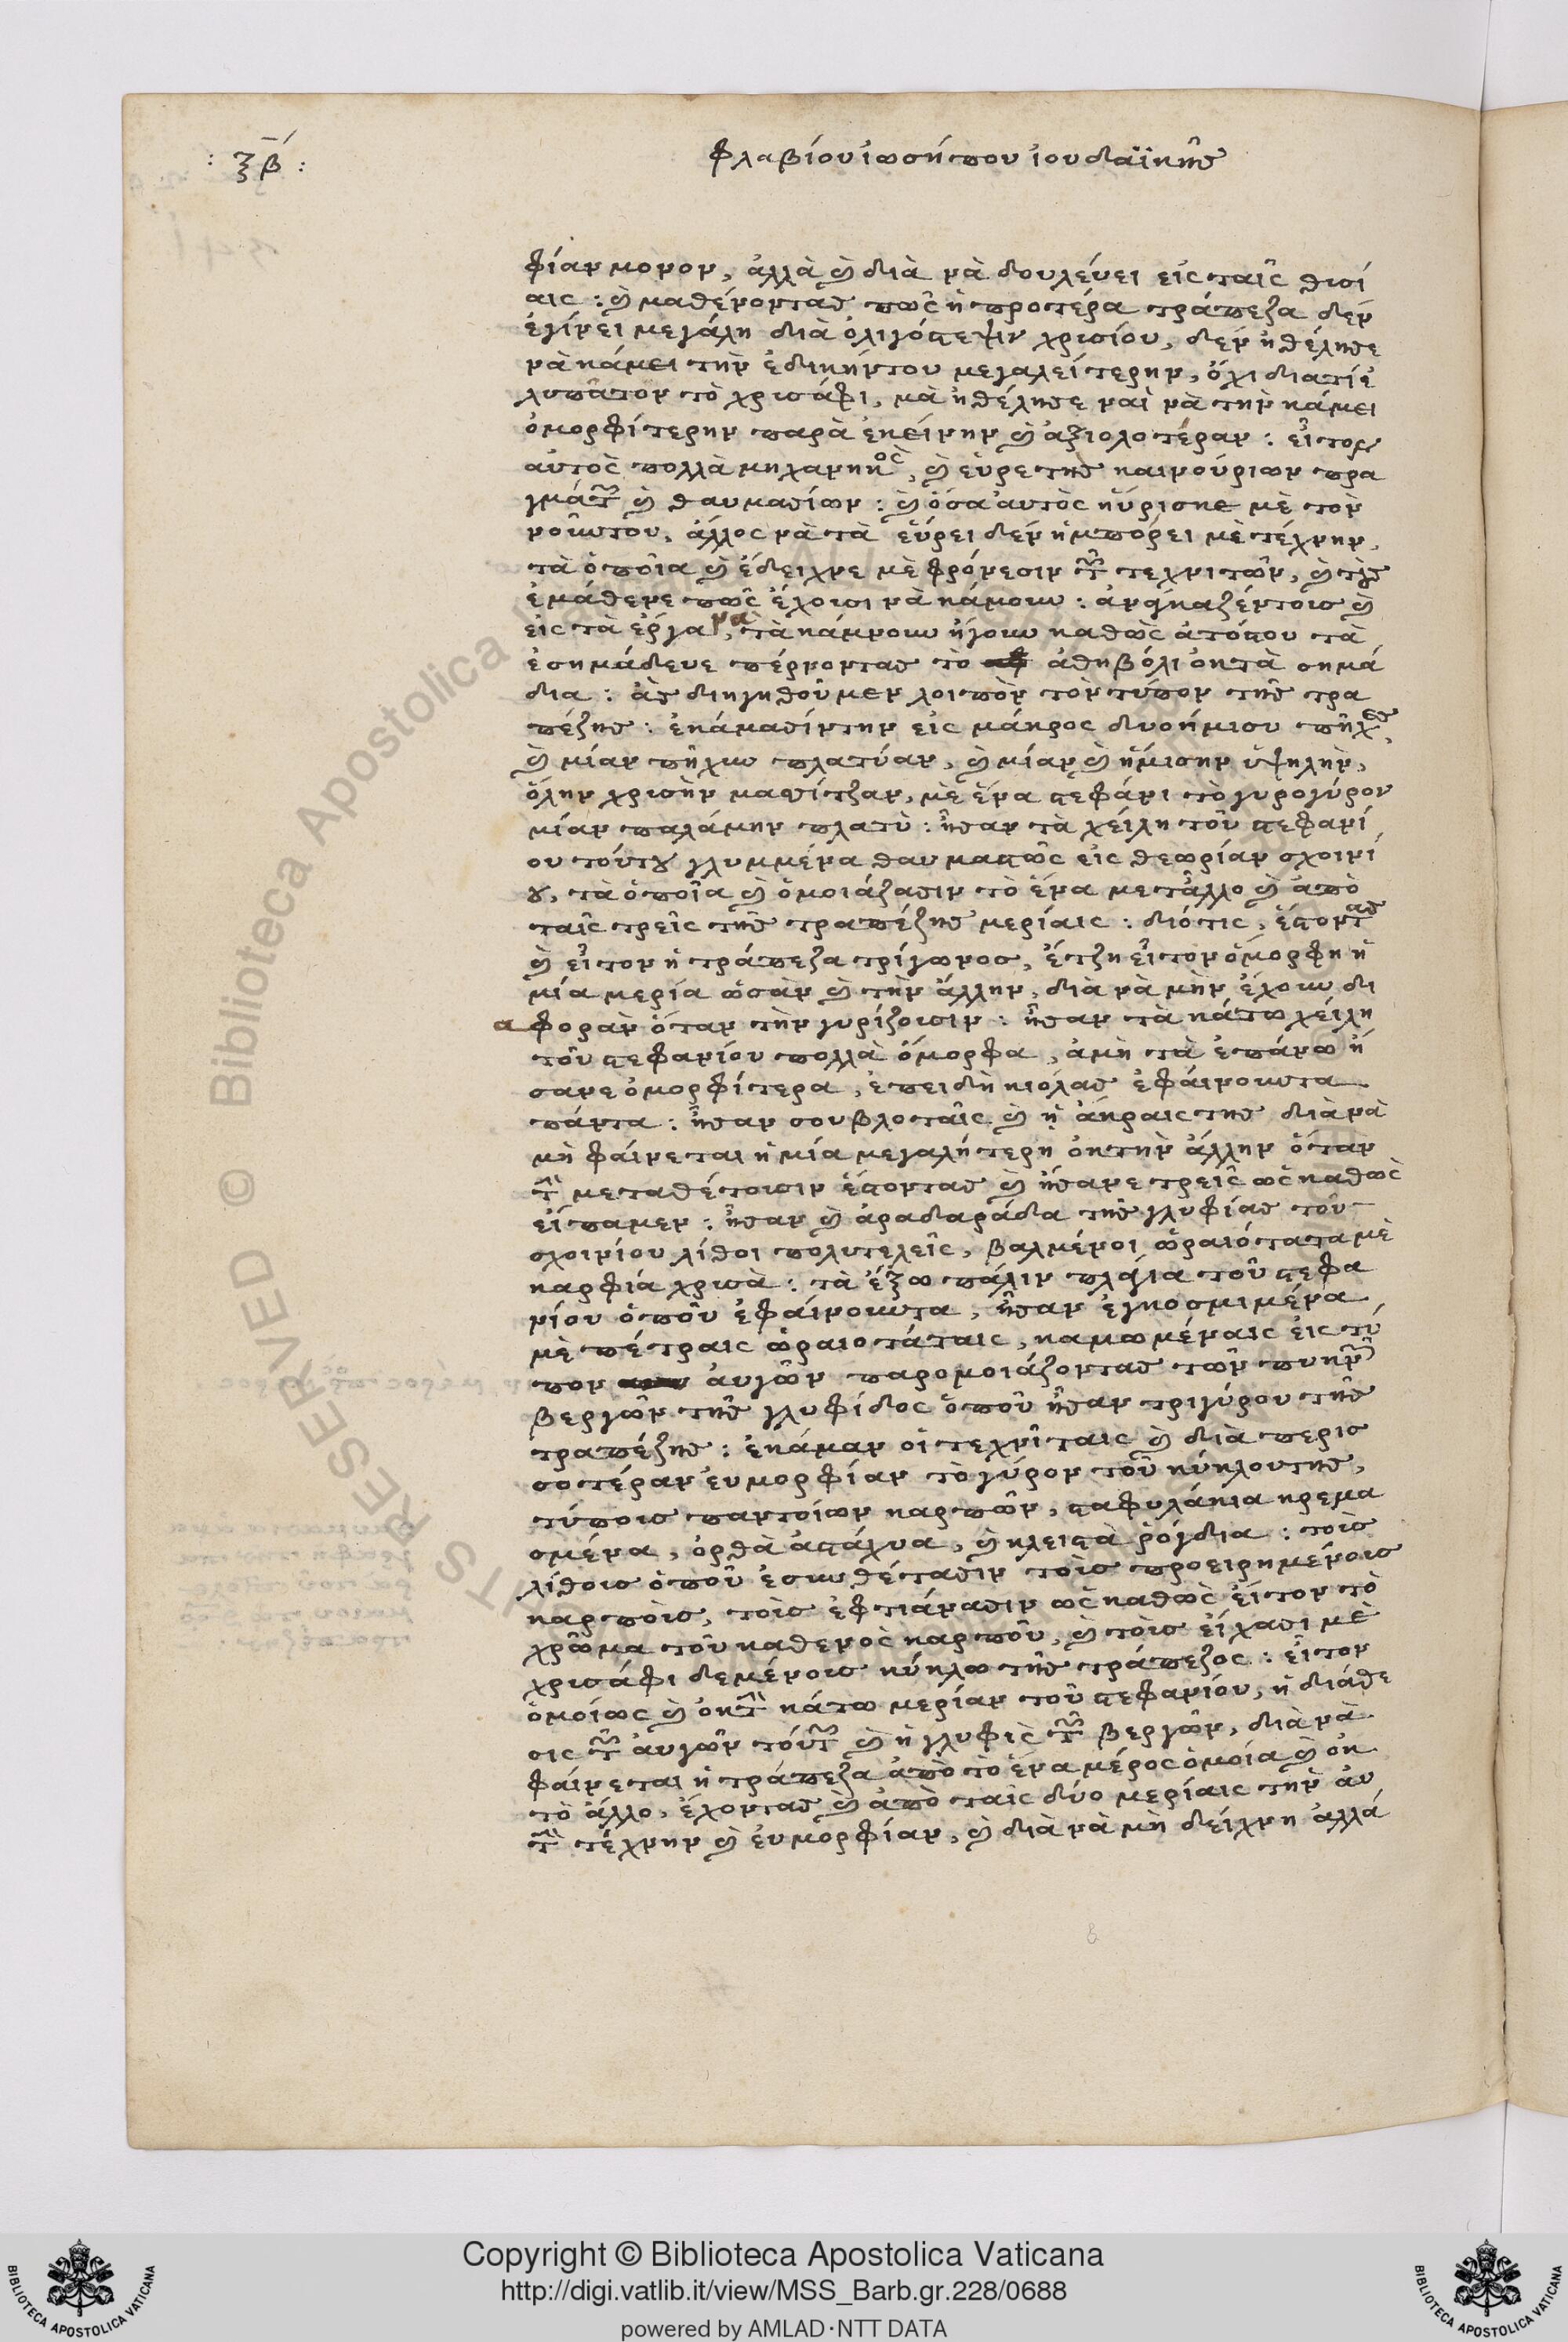 : ξβ :
φλαβίου ἰωσήπου ἰουδαϊκῆς
φίαν μονον, ἀλλὰ καὶ διὰ νὰ δουλέυει εἰς ταῖς θισί
αις : καὶ μαθένοντας πῶς ἡ προτέρα τράπεζα δὲν
ἐγίνει μεγάλη διὰ ὀλιγόστεψιν χρισίου, δὲν ἠθέλησε
νὰ κάμει τὴν ἐδικήντου μεγαλείτερην, ὄχι διατί ἐ
λυπᾶτον τὸ χρισάφι, μὰ ἠθέλησε ναὶ νὰ τὴν κάμει
ὀμορφίτερην παρὰ ἐκείνην καὶ ἀξιολοτέραν : εἶτον
αὐτὸς πολλὰ μηχανηκὸς, καὶ εὑρετης καινούριων πρα
γμάτων καὶ θαυμασίων : καὶ ὅσα αὐτὸς ηὕρισκε μὲ τὸν
νοῦντου, ἄλλος νὰ τὰ εὕρει δὲν ἡμπόρει μὲ τέχνην,
τὰ ὁποῖα καὶ ἔδειχνε μὲ φρόνεσιν τῶν τεχνιτῶν, καὶ τοὺς
ἐμάθενε πῶς ἔχουσι νὰ κάμουν : ἀναγκαζέντοις καὶ
εἰς τὰ ἔργα, νὰ τὰ κάμνουν ἤγουν καθὼς ἀτόςου τὰ
ἐσημάδευε πέρνοντας τὸ ἀθηβόλι ὀκτὰ σημά
δια : ἂς διηγηθοῦμεν λοιπὸν τὸν τύπον τῆς τρα
πέζης : ἐκάμασίντην εἰς μάκρος δυοήμισυ πῆχες,
καὶ μίαν πῆχυν πλατύαν, καὶ μίαν καὶ ἥμισην ὑψηλὴν,
ὅλην χρισὴν μασίτζαν, μὲ ἕνα στεφάνι τὸ γυρογύρον
μίαν παλάμην πλατὺ : ἦσαν τὰ χείλη τοῦ στεφανί
ου τούτου γλυμμένα θαυμαστῶς εἰς θεωρίαν σχοινί
ου, τὰ ὁποῖα καὶ ὁμοιάζασιν τὸ ἕνα μετἄλλο καὶ ἀπὸ
ταῖς τρεῖς τῆς τραπέζης μερίαις : διότις, ἔστοντας
καὶ εἶτον ἡ τράπεζα τρίγωνος, ἔτζη εἶτον ὄμορφη ἡ
μία μερία ὡσὰν καὶ τὴν ἄλλην, διὰ νὰ μὴν ἔχουν δι
αφορὰν ὅταν τὴν γυρίζουσιν : ἦσαν τὰ κάτω χείλη
τοῦ στεφανίου πολλὰ ὄμορφα, ἀμὴ τὰ ἐπάνω ἤ
σανε ὀμορφίτερα, ἐπειδὴ κιόλας ἐφάινουντα
πάντα : ἦσαν σουβλοταῖς καὶ ἡ ἄκραις της διὰ νὰ
μὴ φάινεται ἡ μία μεγαλήτερη ὀκτὴν ἄλλην ὅταν
τὴν μεταθέτουσιν ἔστοντας καὶ ἤσανε τρεῖς ὡς καθὼς
εἴπαμεν : ἦσαν καὶ ἀραδαράδα τῆς γλυφίας τοῦ
σχοινίου λίθοι πολυτελεῖς, βαλμένοι ὡραιότατα μὲ
καρφία χρισὰ : τὰ ἔξω πάλιν πλαγια τοῦ στεφα
νίου ὁποῦ ἐφάινουντα, ἦσαν ἐγκοσμιμένα
μὲ πέτραις ὡραιοτάταις, καμωμέναις εἰς τύ
πον ἀυγῶν παρομοιάζοντας τῶν πυκνῶν
βεργῶν τῆς γλυφίδος ὁποῦ ἦσαν τριγύρου τῆς
τραπέζης : ἐκάμαν οἱ τεχνῖταις καὶ διὰ περισ
σοτέραν ἐυμορφίαν τὸ γύρον τοῦ κύκλουτης,
τύποις παντοίων καρπῶν, σταφυλάκια κρεμα
σμένα, ὀρθὰ ἀστάχυα, καὶ κλειστὰ ρόγδια : τοὶς
λίθοις ὁποῦ ἐσυνθέτασιν τοὶς προειρημένοις
καρποὶς, τοὶς ἐφτιάνασιν ὡς καθὼς εἶτον τὸ
χρῶμα τοῦ καθενὸς καρποῦ, καὶ τοὶς εἴχασι μὲ
χρισάφι δεμένοις κύκλω τῆς τράπεζος : εἶτον
ὁμοίως καὶ ὀκτὴν κάτω μερίαν τοῦ στεφανίου, ἡ διάθε
σις τῶν ἀυγῶν τούτων καὶ ἡ γλυφὶς τῶν βεργῶν, διὰ νὰ
φάινεται ἡ τράπεζα ἀπὸ τὸ ἕνα μέρος ὁμοία καὶ ὀκ
τὸ ἄλλο, ἔχοντας καὶ ἀπὸ ταῖς δύο μερίαις τὴν ἀυ
τὴν τέχνην καὶ ἐυμορφίαν, καὶ διὰ νὰ μὴ δείχνη ἀλλά
Copyright © Biblioteca Apostolica Vaticana
http://digi.vatlib.it/view/MSS_Barb.gr.228/0688
powered by AMLAD·NTT DATA